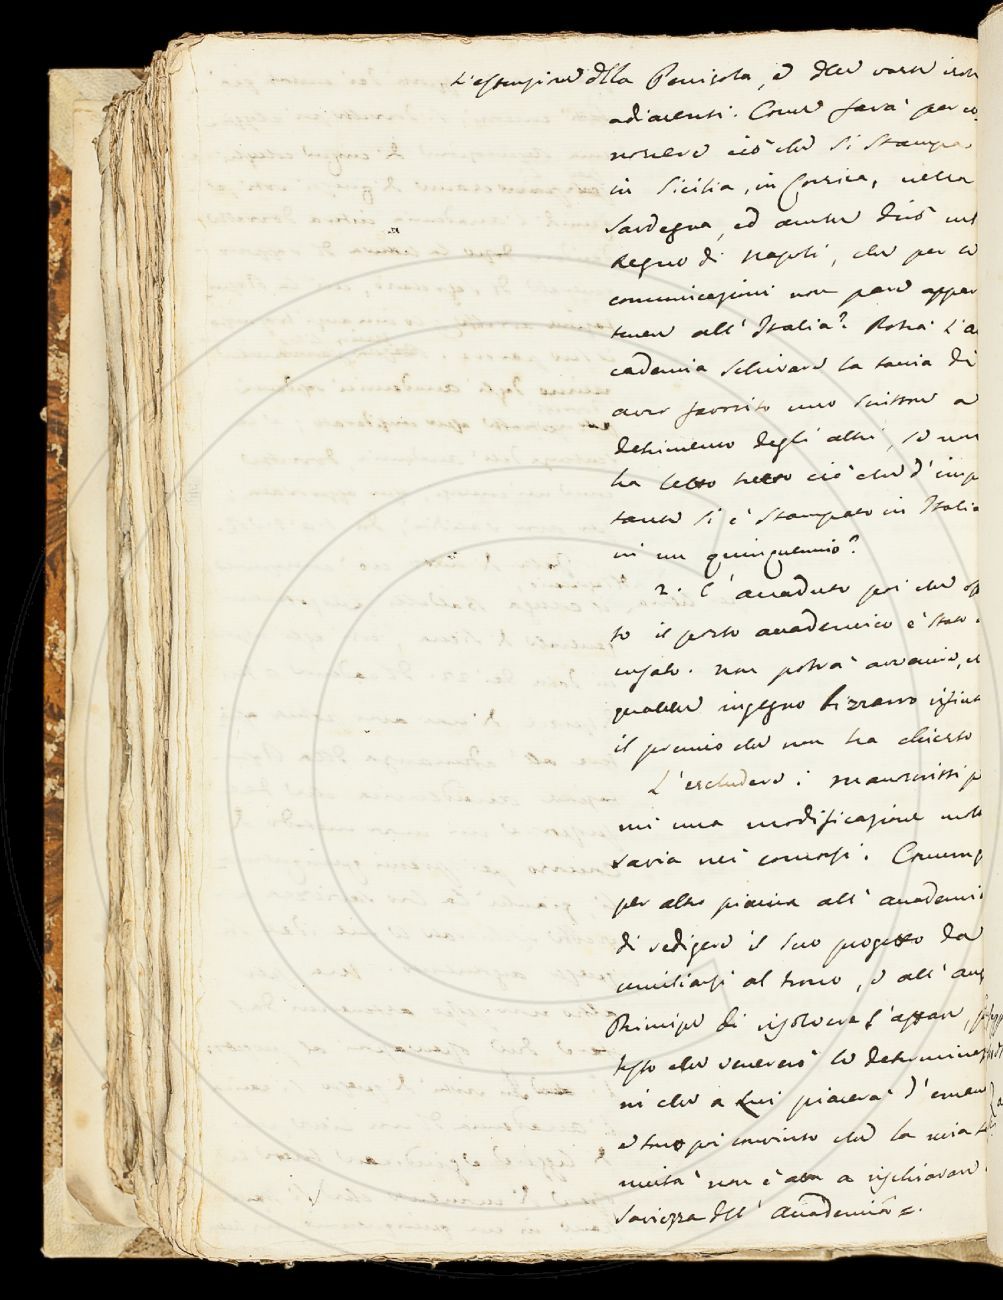 L'estensione della Penisola, e delle vaste isole
adiacenti. Come farà per co
noscere ciò che si stampa
in Sicilia, in Corsica, nella
Sardegna, ed anche dirò nel
Regno di Napoli, che per le
comunicazioni non pare appar
tenere all'Italia? Potrà l'ac
cademia schivare la taccia di
aver favorito uno scrittore a
detrimento degli altri, se non
ha letto tutto ciò che d'impor
tante si è stampato in Italia
in un quinquennio?
2. È accaduto poi che
to il posto accademico è stato
cusato. Non potrà avvenire, ch
qualche ingegno bizzarro rifiuti
il premio che non ha chiesto
L'escludere i manoscritti p
mi una modificazione
saria nei concorsi. Comunque
per altro piaccia all'accademia
di redigere il suo progetto da
umiliarsi al trono, e all'aug
Principe di risolvere l'affare,
testo che venererò le determinazio
ni che a Lui piacerà d'eman
e sono poi convinto che la mia
nuità non è atta a rischiarare
Saviezza dell'accademia =.